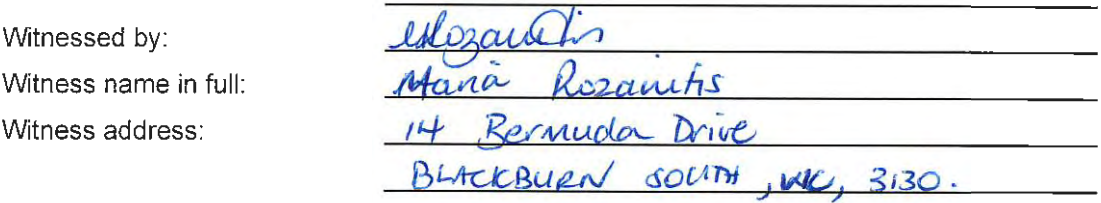 Witnessed by:
Witness name in full: Maria Rozanitis
Witness address: 14 Bermuda Drive
BLACKBURN SOUTH, VIC, 3130.